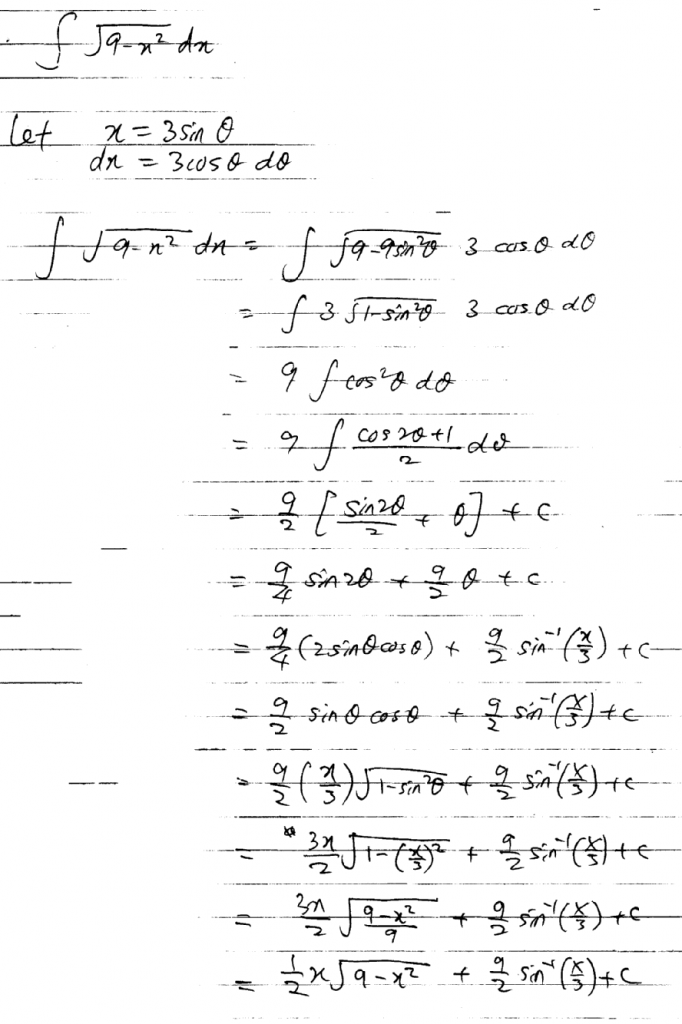 ∫ √(9-x²) dx
Let x = 3 sin θ
dx = 3 cos θ dθ
∫ √(9-x²) dx = ∫ √(9-9sin²θ) 3 cos θ dθ
= ∫ 3 √(1-sin²θ) 3 cos θ dθ
= 9 ∫ cos²θ dθ
= 9 ∫ (cos 2θ + 1)/2 dθ
= 9/2 [sin 2θ/2 + θ] + c
= 9/4 sin 2θ + 9/2 θ + c
= 9/4 (2 sin θ cos θ) + 9/2 sin⁻¹(x/3) + c
= 9/2 sin θ cos θ + 9/2 sin⁻¹(x/3) + c
= 9/2 (x/3) √(1-sin²θ) + 9/2 sin⁻¹(x/3) + c
= 3x/2 √(1-(x/3)²) + 9/2 sin⁻¹(x/3) + c
= 3x/2 √((9-x²)/9) + 9/2 sin⁻¹(x/3) + c
= 1/2 x √(9-x²) + 9/2 sin⁻¹(x/3) + c